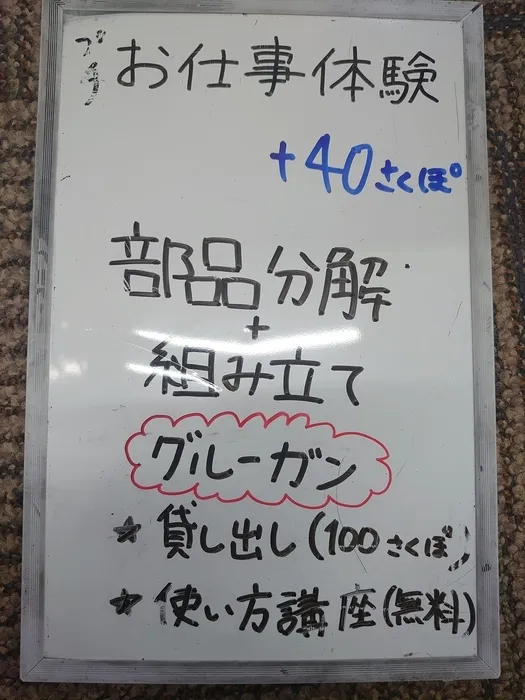 お仕事体験
+40さくぽ
部品分解
+
組み立て
グルーガン
★ 貸し出し(100さくぽ)
★ 使い方講座(無料)